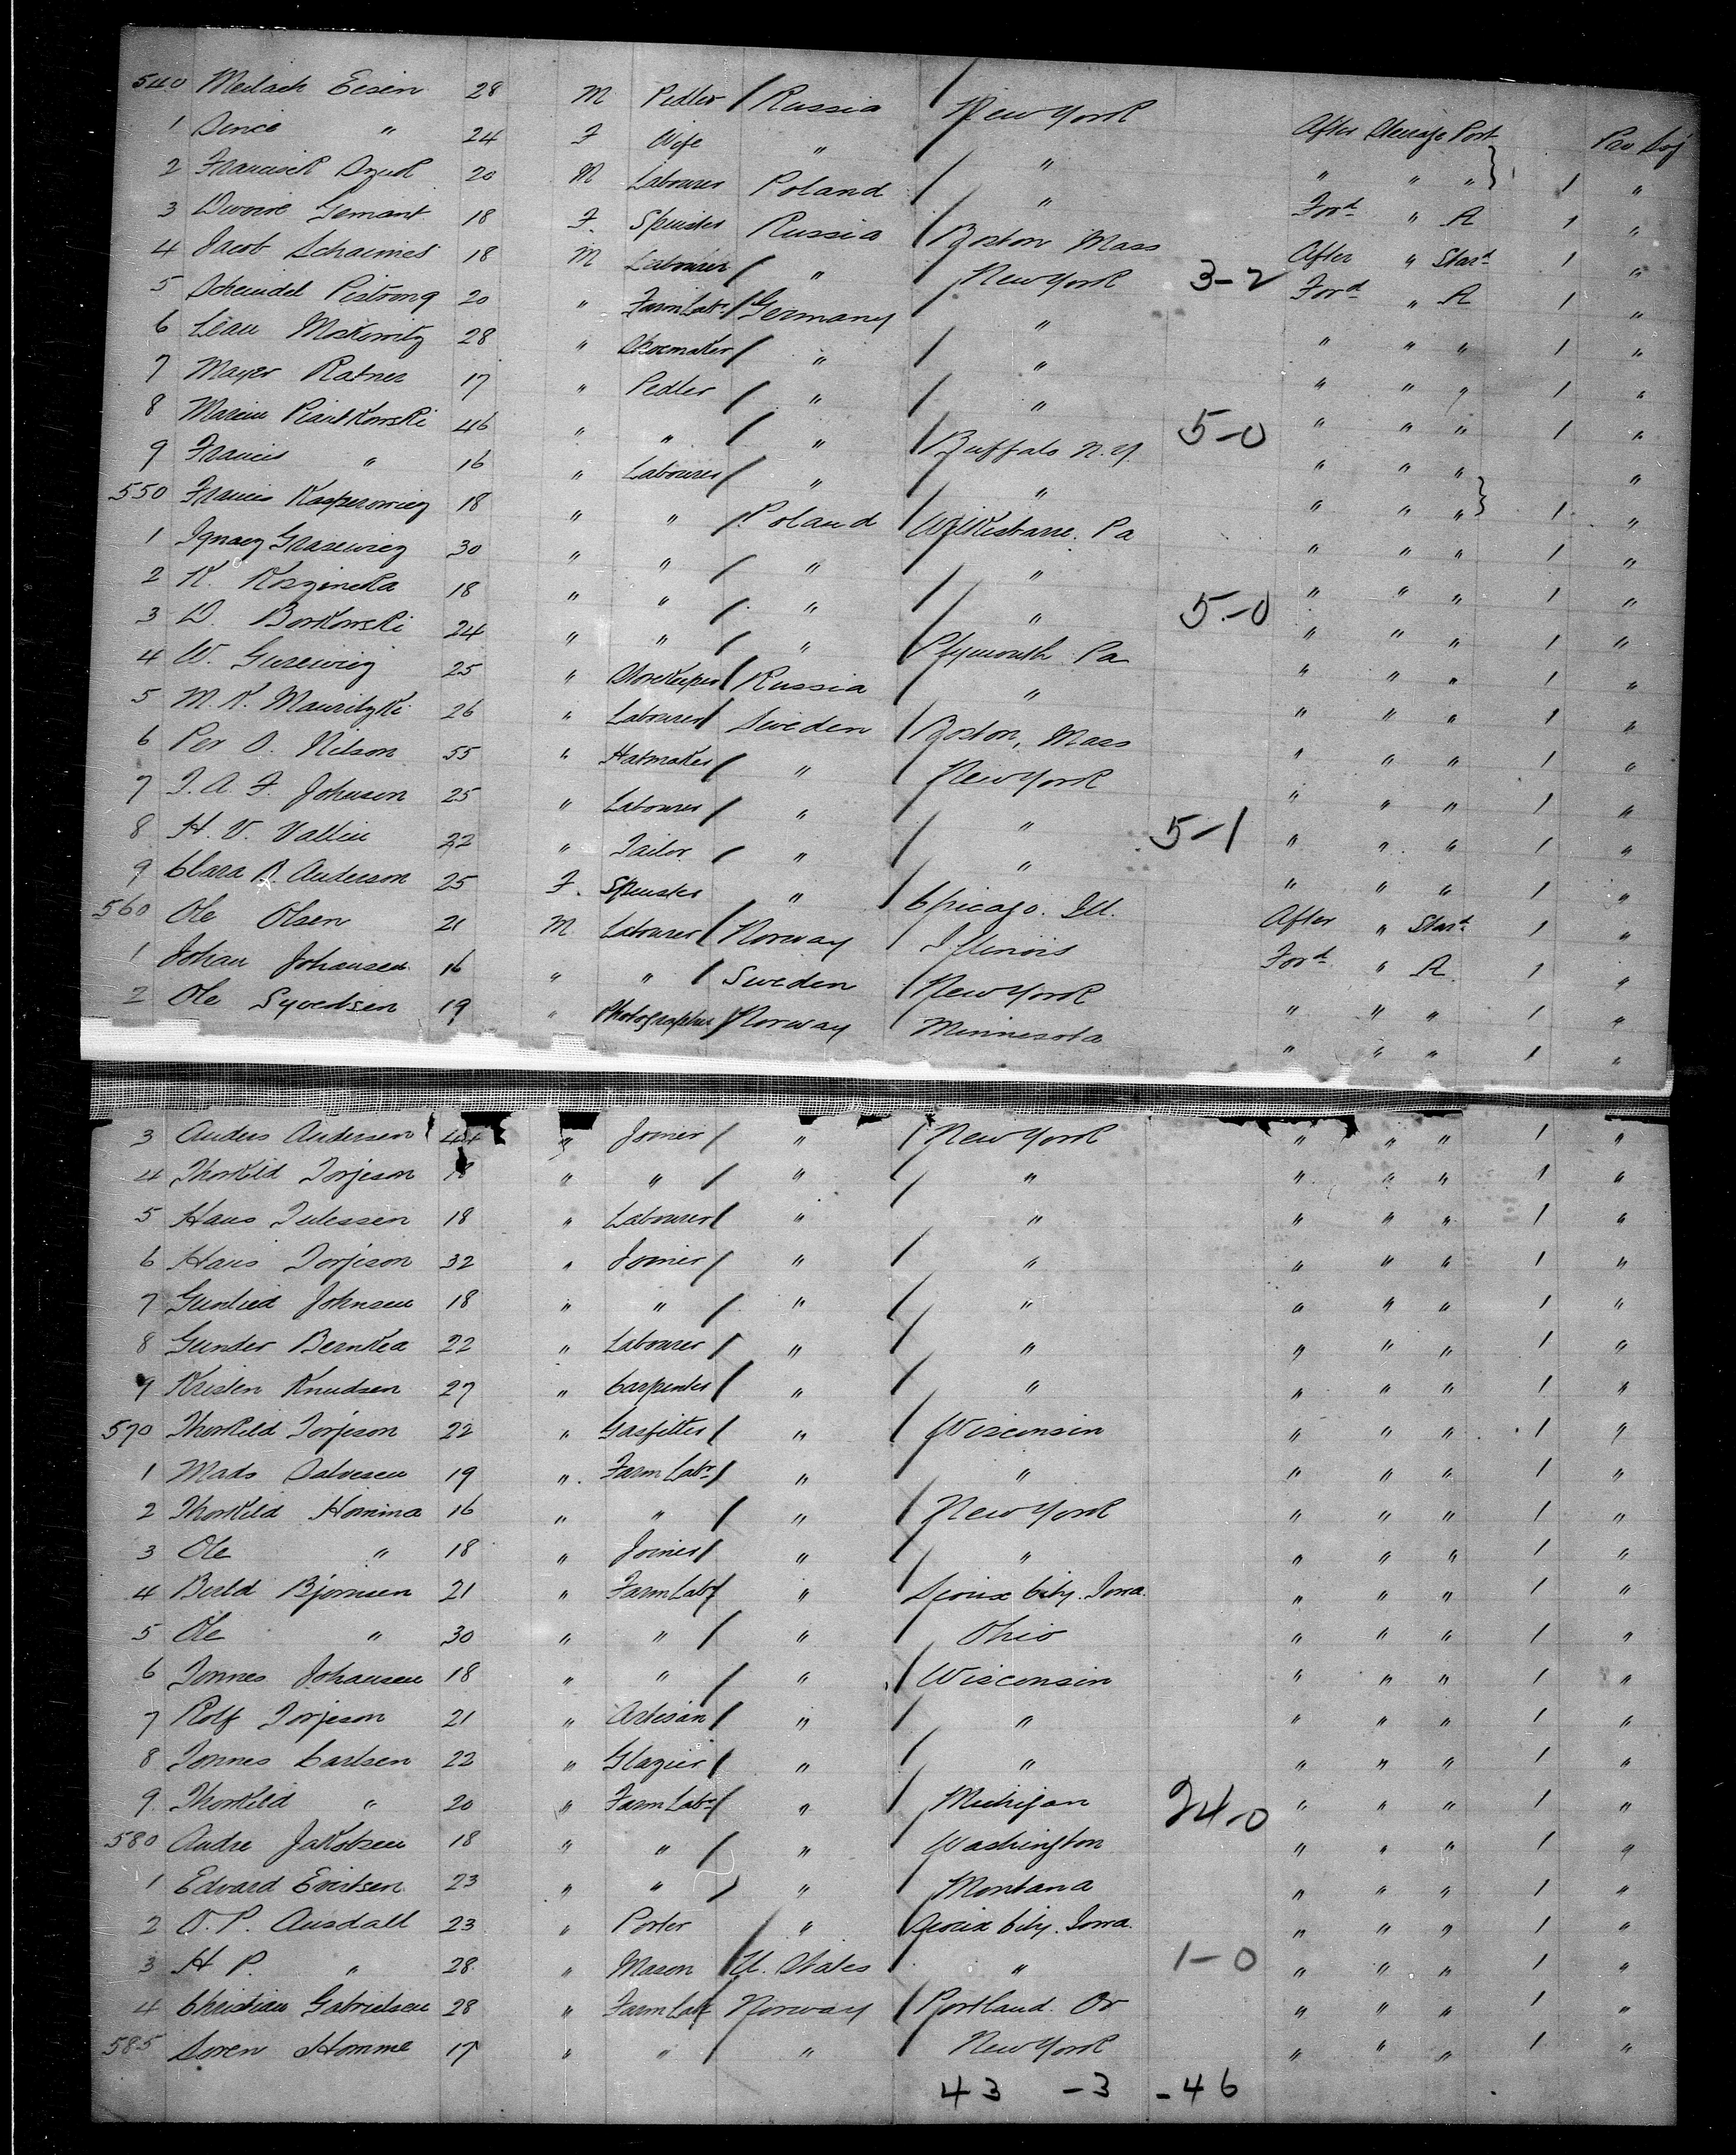 540 Meilach Eisen 28 M Pedler / Russia / New York After Steerage Port Pro Soj
1 " 24 F Wife " " " " " 1 "
2 20 M Labourer Poland / " Ford " A 1 "
3 Gemant 18 F. Spinster Russia / Boston Mass After " Star'd 1 "
4 Jacob Schaimes 18 M Labourer / " / New York 3-2 Ford " A 1 "
5 Scheindel 20 " Farm Labr / Germany / " " " " 1 "
6 Moskowitz 28 " Shoemaker / " / " " " " 1 "
7 Mayer Ratner 17 " Pedler / " / " " " " 1 "
8 46 " " / " / Buffalo N.Y. 5-0 " " " "
9 Francis " 16 " Labourer / " / " " " " 1 "
550 Francis Kasperowicz 18 " " / Poland / Wilkisbarre. Pa " " " 1 "
1 Ignacz 30 " " / " / " " " " 1 "
2 K. 18 " " / " / " 5-0 " " " 1 "
3 Borkowski 24 " " / " / Plymouth Pa " " " 1 "
4 W. 25 " Storekeeper / Russia / " " " " 1 "
5 M. K. 26 " Labourer / Sweden / Boston, Mass " " " 1 "
6 Per O. Nilson 55 " Hatmaker / " / New York " " " 1 "
7 A. F. Johnson 25 " Labourer / " / " " " " 1 "
8 H. V. Vallin 22 " Tailor / " / " 5-1 " " " 1 "
9 Clara B Anderson 25 F. Spinster " / Chicago. Ill. After " Star'd 1 "
560 Ole Olsen 21 M Labourer / Norway / Illinois Ford " A 1 "
1 Johan Johansen 16 " " / Sweden / New York " " " 1 "
2 Ole Syvertsen 19 " Photographer / Norway Minnesota " " " 1 "
3 Anders Andersen 44 " Joiner / " / New York " " " 1 "
4 Thorkild Torjeson 18 " " / " / " " " " 1 "
5 Hans 18 " Labourer / " " " " " 1 "
6 Hans Torjeson 32 " Joiner / " / " " " " 1 "
7 Johnsen 18 " " / " / " " " " 1 "
8 Gunder 22 " Labourer / " / " " " " 1 "
9 Kristen Knudsen 27 " Carpenter / " / " " " " 1 "
570 Thorkild Torjeson 22 " Gasfitter / " / Wisconsin " " " 1 "
1 Mads Salvesen 19 " Farm Labr / " / " " " " 1 "
2 Thorkild Homma 16 " " / " / New York " " " 1 "
3 Ole " 18 " Joiner / " / " " " " 1 "
4 Bjornsen 21 " Farm Labr / " / Sioux City. Iowa. " " " 1 "
5 Ole " 30 " " / " / Ohio " " " 1 "
6 Tonnes Johansen 18 " " / " / Wisconsin " " " 1 "
7 Rolf Torjeson 21 " Artisan / " / " " " " 1 "
8 Tonnes Carlsen 22 " Glazier / " / " " " " 1 "
9 Thorkild " 20 " Farm Labr / " / Michigan 24-0 " " " 1 "
580 Andre Jakobsen 18 " " / " / Washington " " " 1 "
1 Edvard Evertsen 23 " " / " / Montana " " " 1 "
2 O. P. Ausdall 23 " Porter / " / Sioux City. Iowa. " " " 1 "
3 H P. " 28 " Mason / U. States " 1-0 " " " 1 "
4 Christian Gabrielsen 28 " Farm Labr Norway / Portland. Or " " " 1 "
585 Soren Homme 17 " " / " New York " " " 1 "
43 -3 -46